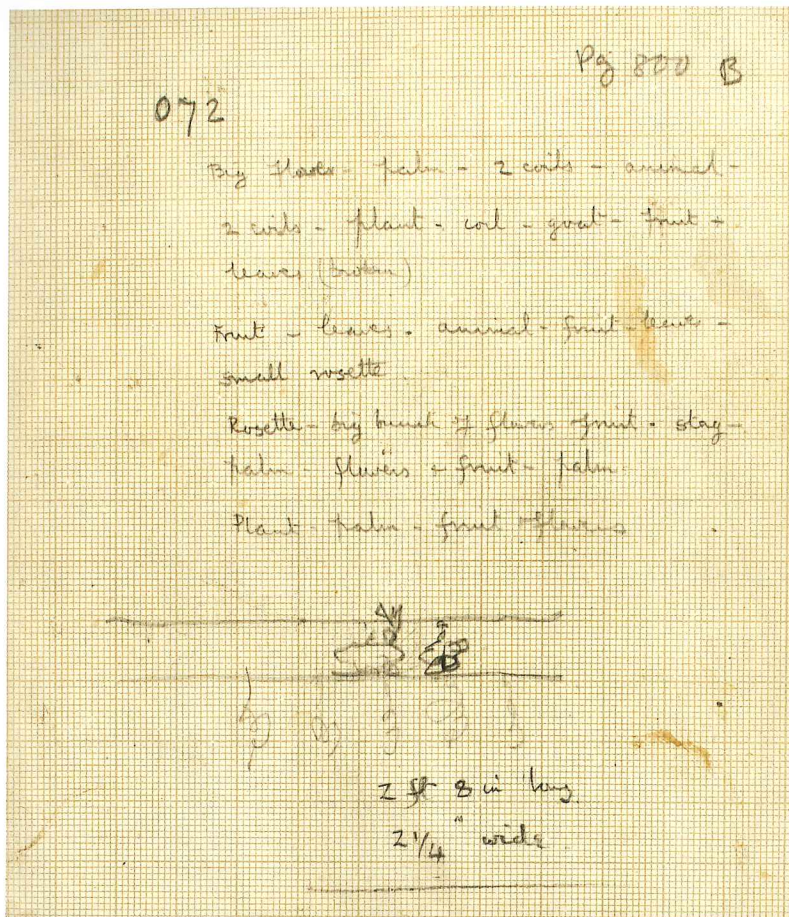 Pg 800 B
072
Big flower - palm - 2 coils - animal -
2 coils - plant - coil - goat - fruit +
leaves (broken)
Fruit - leaves - animal - fruit - leaves -
small rosette.
Rosette - big bunch of flowers + fruit - stag -
palm - flowers + fruit - palm
Plant - palm - fruit + flowers
2 ft 8 in long.
2 1/4 " wide